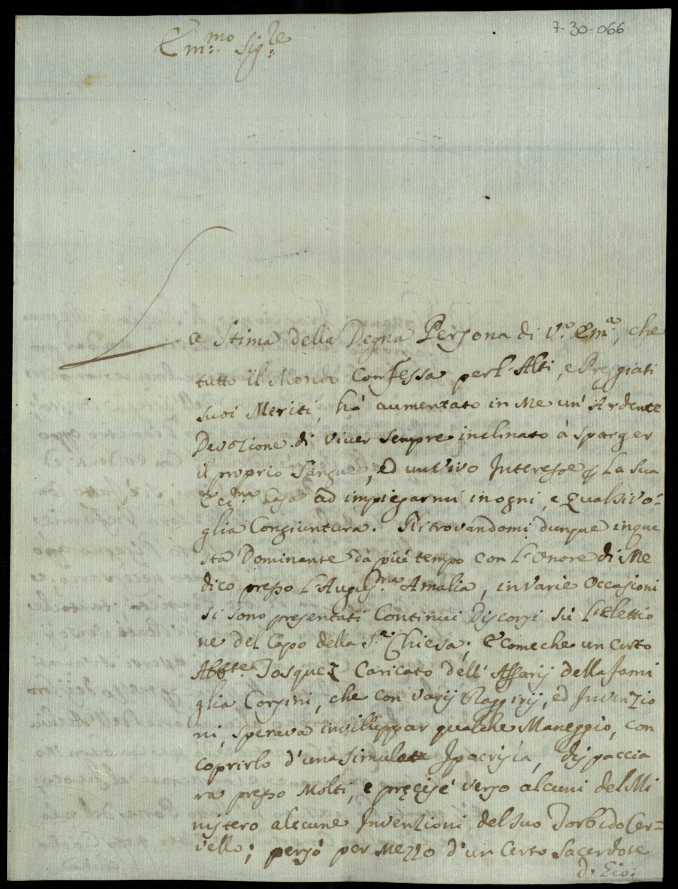 7-30-066
Em:mo Sig:re
La Stima della Degna Persona di V.ra Em.a, che
tutto il Mondo Confessa per l'Alti, e Preggiati
suoi Meriti, hà aumentato in Me un'Ardente
Devozione di viver sempre inclinato à sparger
il proprio Sangue, ed un vivo Interesse la Sua
Ecc:ma Casa ad impiegarmi in ogni, e qualsivo=
glia Congiuntura. Ritrovandomi dunque in que
sta Dominante da più tempo con l'Onore di Me
dico presso l'Augus:ma Amalia, in varie Occasioni
si sono presentati Continui Discorsi sù l'Elettio
ne del Capo della S.a Chiesa; E come che un Certo
Abb:te Tasquez Caricato dell'Affarij della fami
glia Corsini, che con varij Raggirij, ed Invenzio
ni, sperava inviluppar qualche Maneggio, con
coprirlo d'una simulata Ipocrisia, dispaccia
va presso Molti, e precise verso alcuni del Mi
nistero alcune Invenzioni del suo Torbido Cer=
vello; persò per Mezzo d'un Certo Sacerdote